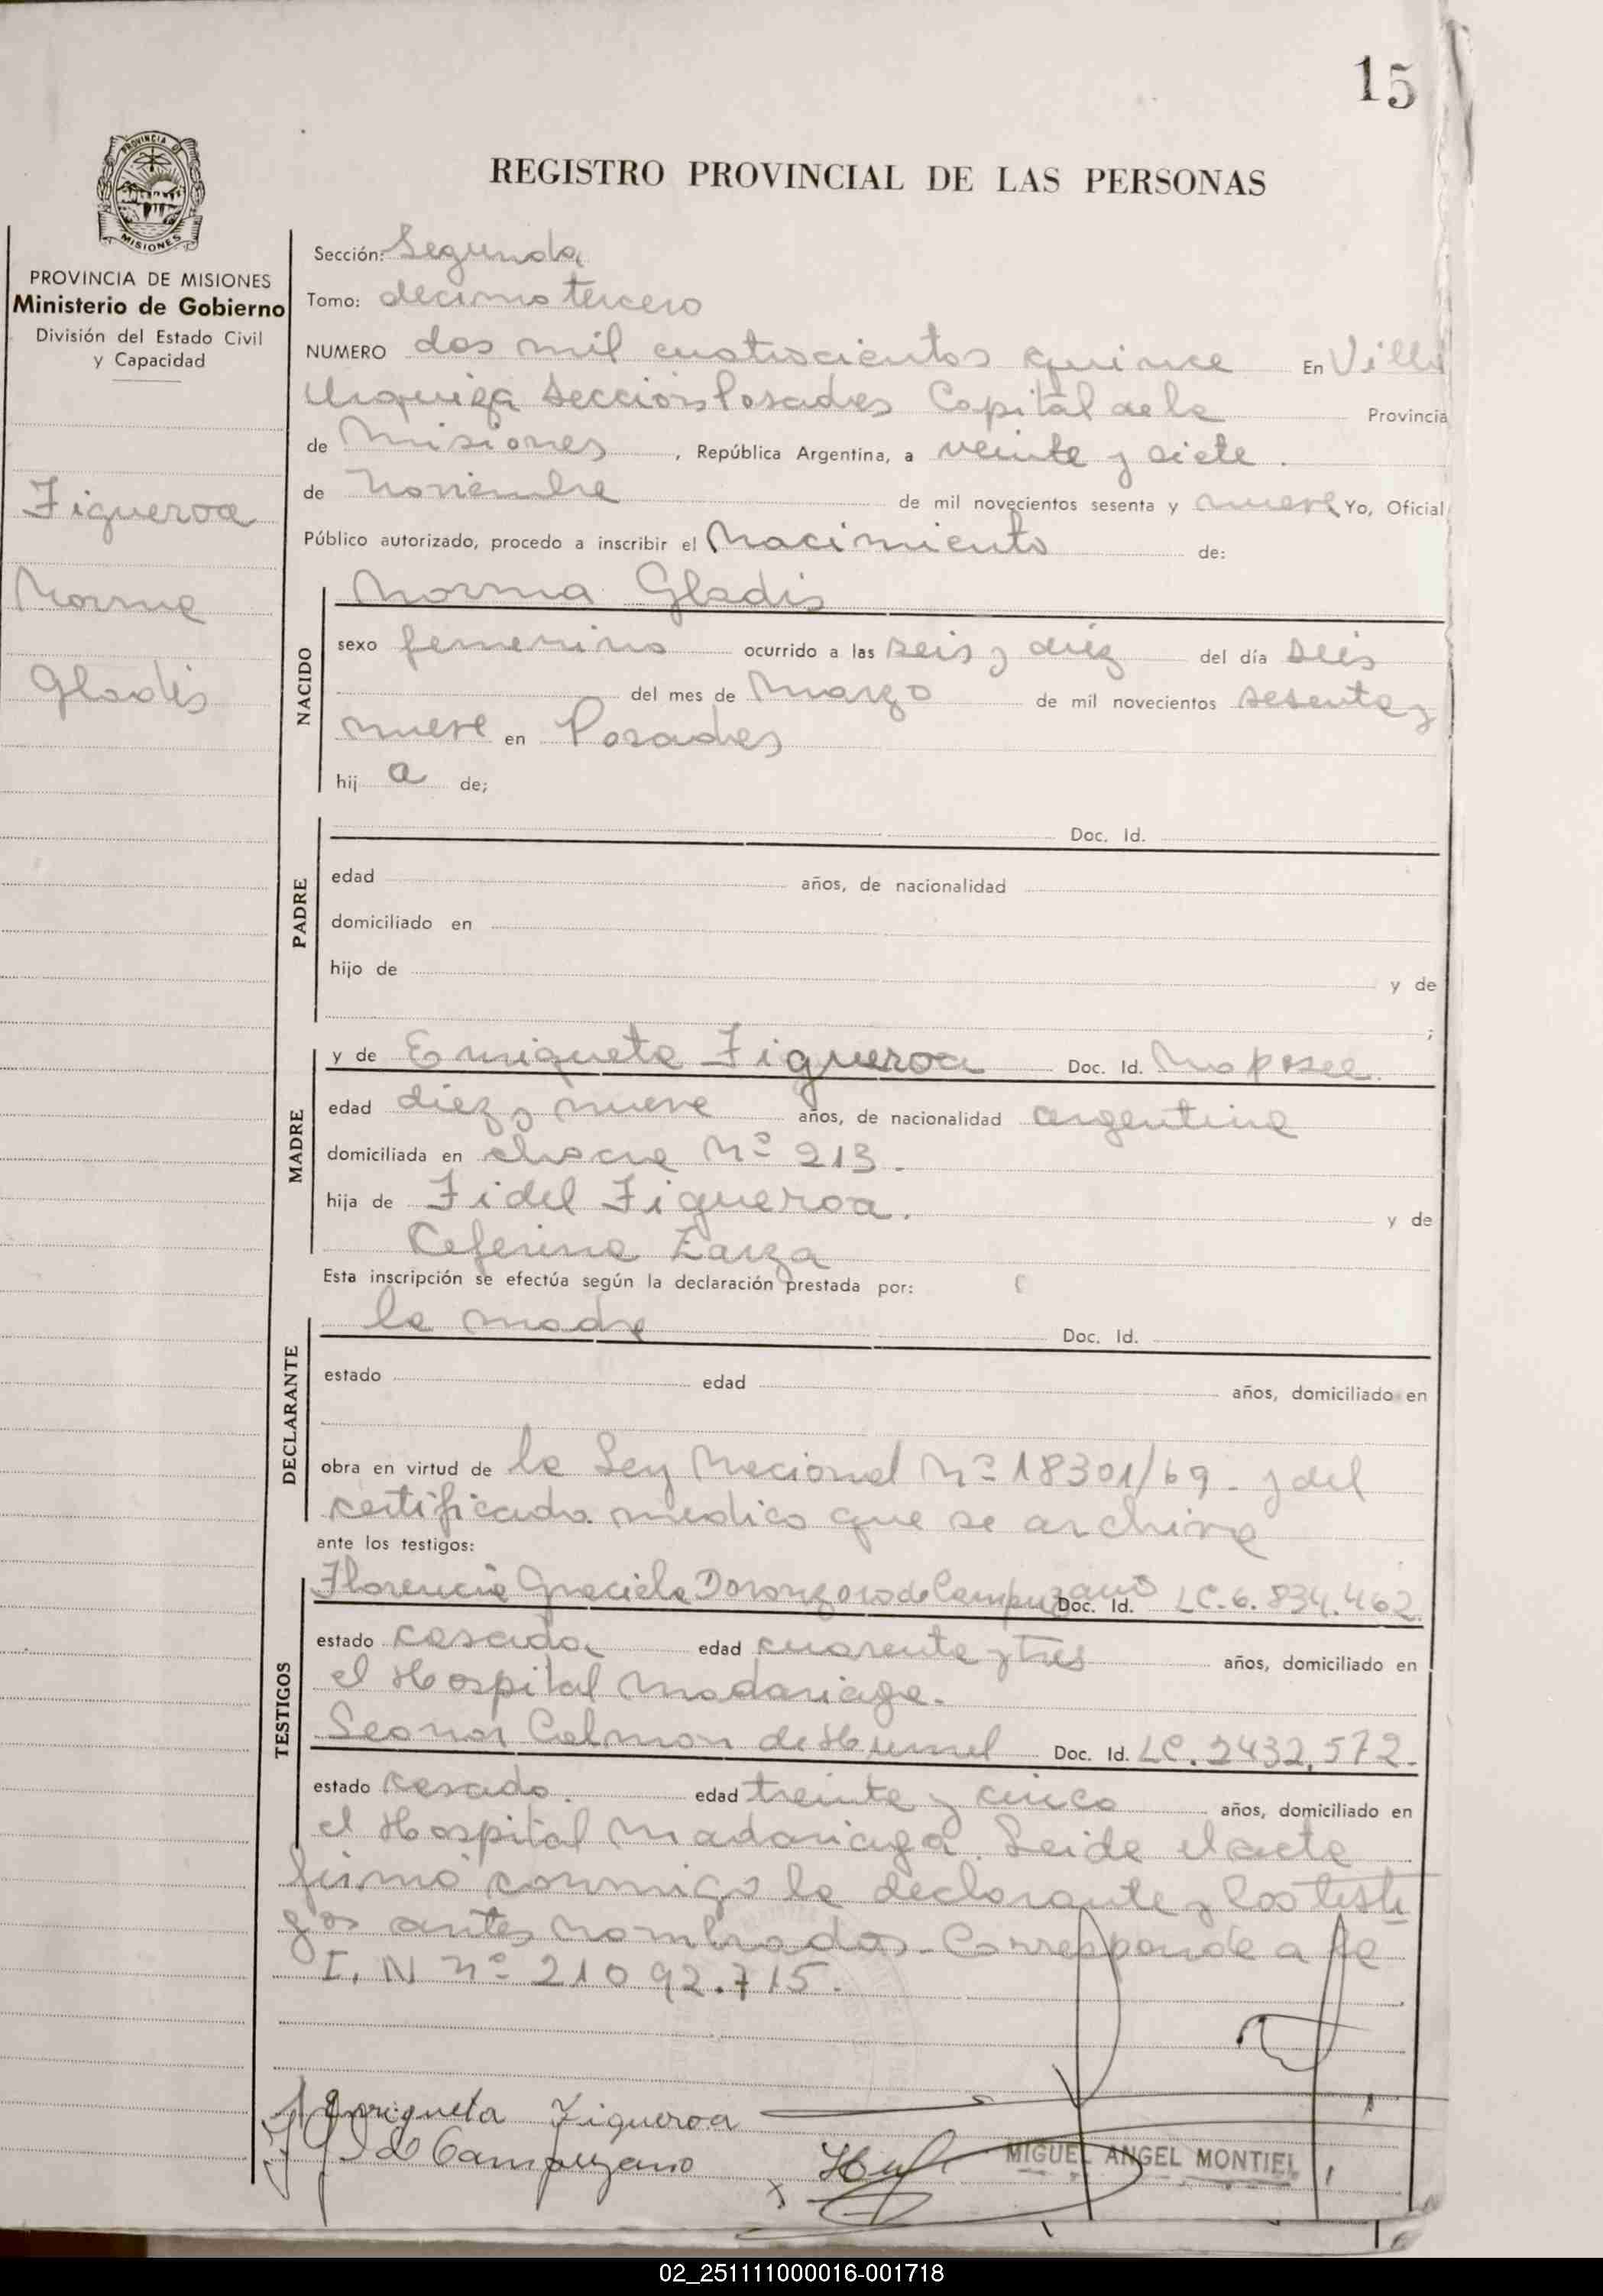 15
PROVINCIA DE
MISIONES
REGISTRO PROVINCIAL DE LAS PERSONAS
PROVINCIA DE MISIONES
Ministerio de Gobierno
División del Estado Civil
y Capacidad
Figueroa
Norma
Gladis
Sección: Segunda
Tomo: decimo tercero
NUMERO dos mil cuatrocientos quince En Villa
Urquiza Sección Posadas Capital de la Provincia
de Misiones, República Argentina, a veinte y siete.
de Noviembre de mil novecientos sesenta y nueve Yo, Oficial
Público autorizado, procedo a inscribir el Nacimiento de:
NACIDO
Norma Gladis
sexo femenino ocurrido a las seis y diez del día seis
del mes de Marzo de mil novecientos sesenta y
nueve en Posadas
hij a de;
PADRE
Doc. Id.
edad años, de nacionalidad
domiciliado en
hijo de y de
;
MADRE
y de Enriqueta Figueroa Doc. Id. No posee.
edad diez y nueve años, de nacionalidad argentina
domiciliada en chacra Nº 213.
hija de Fidel Figueroa. y de
Ceferina Zarza
Esta inscripción se efectúa según la declaración prestada por:
DECLARANTE
la madre Doc. Id.
estado edad años, domiciliado en
obra en virtud de la Ley Nacional Nº 18301/69 - y del
certificado medico que se archiva
ante los testigos:
TESTIGOS
Florencia Graciela Doronzoro de Campuzano Doc. Id. LC. 6.834.462.
estado casada edad cuarenta y tres años, domiciliado en
el Hospital Madariaga.
Leonor Calmon de Humel Doc. Id. LC. 2432,572.
estado casada. edad treinta y cinco años, domiciliado en
el Hospital Madariaga. Leida el acta
firmó conmigo la declarante y los testi
gos antes nombrados. Corresponde a fe
I. N nº 21092.715.
Enriqueta Figueroa
de Campuzano
MIGUEL ANGEL MONTIEL
02_251111000016-001718